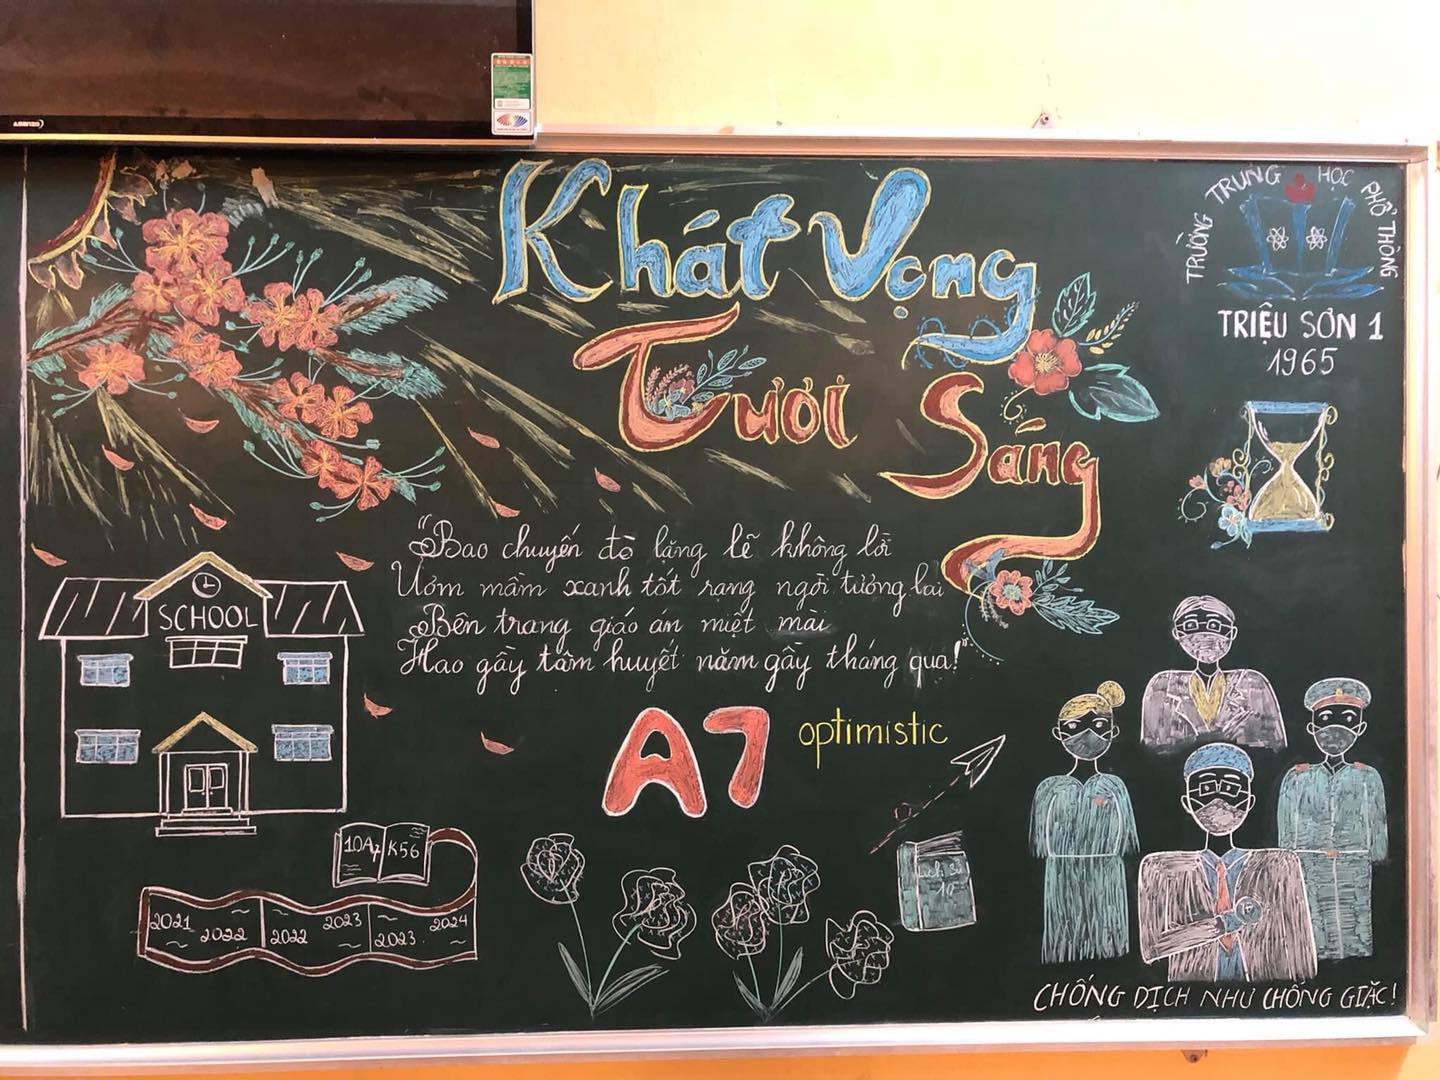 Khát Vọng
Tươi Sáng
TRƯỜNG TRUNG HỌC PHỔ THÔNG
TRIỆU SƠN 1
1965
"Bao chuyến đò lặng lẽ không lời
Ươm mầm xanh tốt rạng ngời tương lai
Bên trang giáo án miệt mài
Hao gầy tâm huyết năm gầy tháng qua!"
SCHOOL
A7 optimistic
10A7 K56
2021 2022 2022 2023 2023 2024
10
CHỐNG DỊCH NHƯ CHỐNG GIẶC!